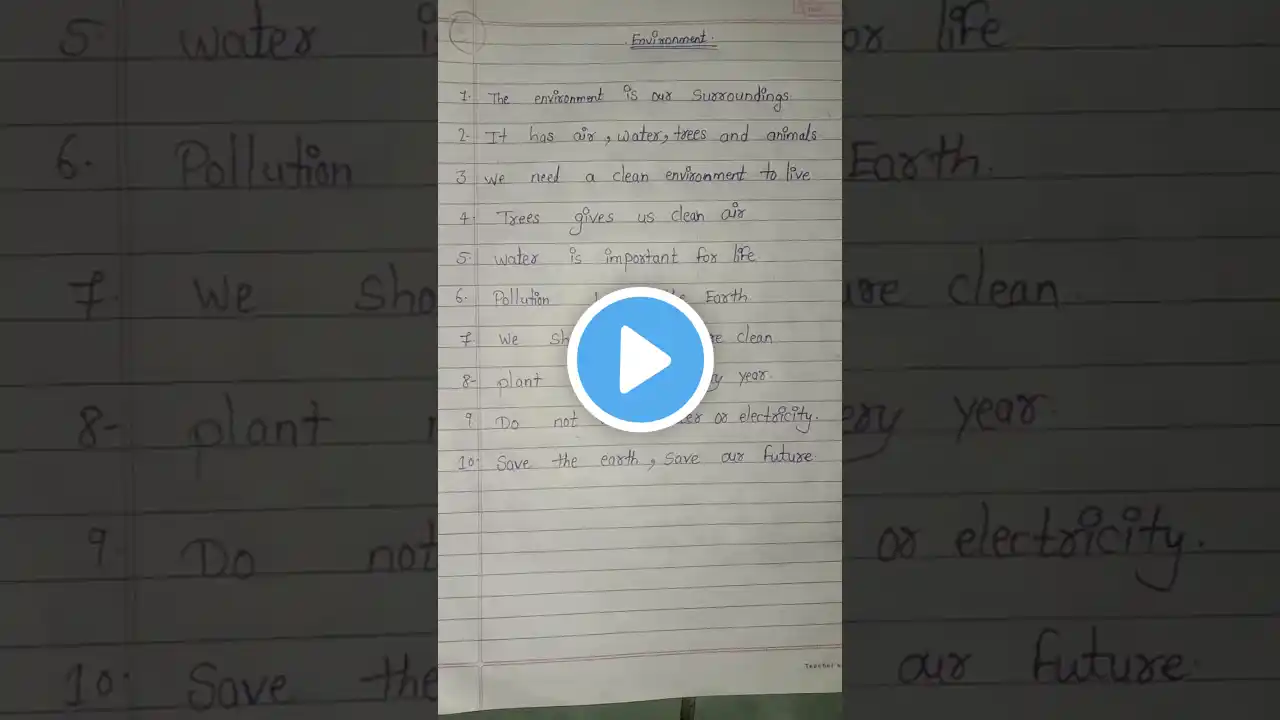 Environment.
1. The environment is our surroundings.
2- It has air, water, trees and animals
3 we need a clean environment to live
4. Trees gives us clean air
5. water is important for life
6. Pollution the Earth.
7. We sho clean
8- plant year.
9. Do not or electricity.
10. Save the earth, save our future.